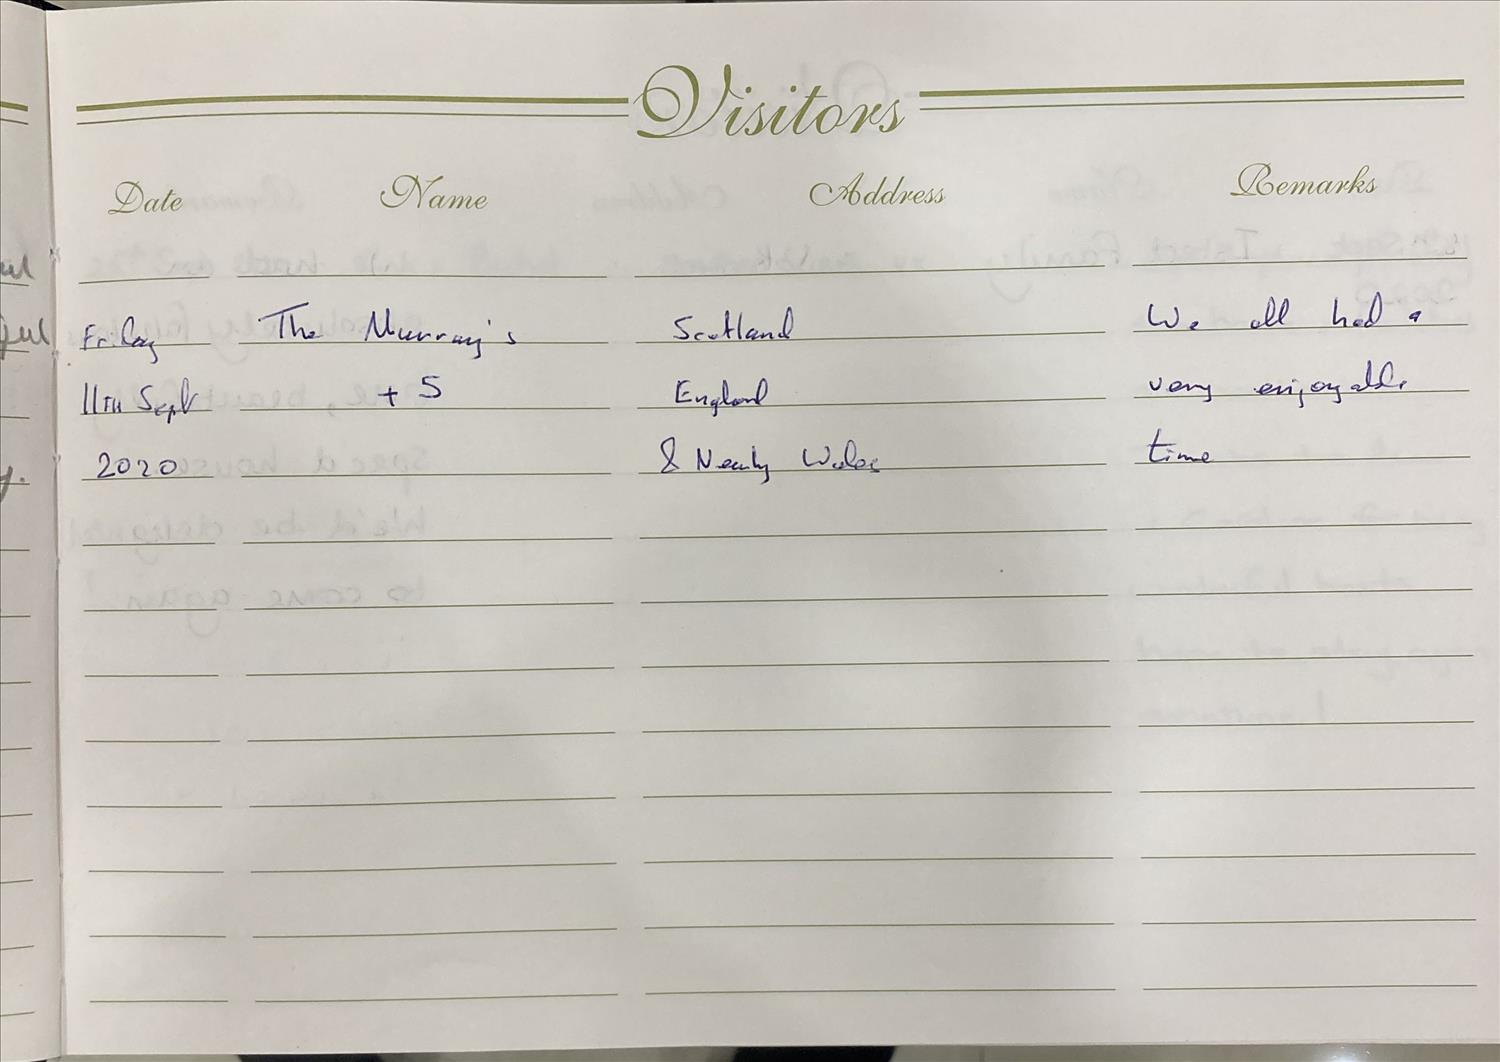 Visitors
Date Name Address Remarks
Friday The Murray's Scotland We all had a
11TH Sept + 5 England very enjoyable
2020 & Nearly Wales time